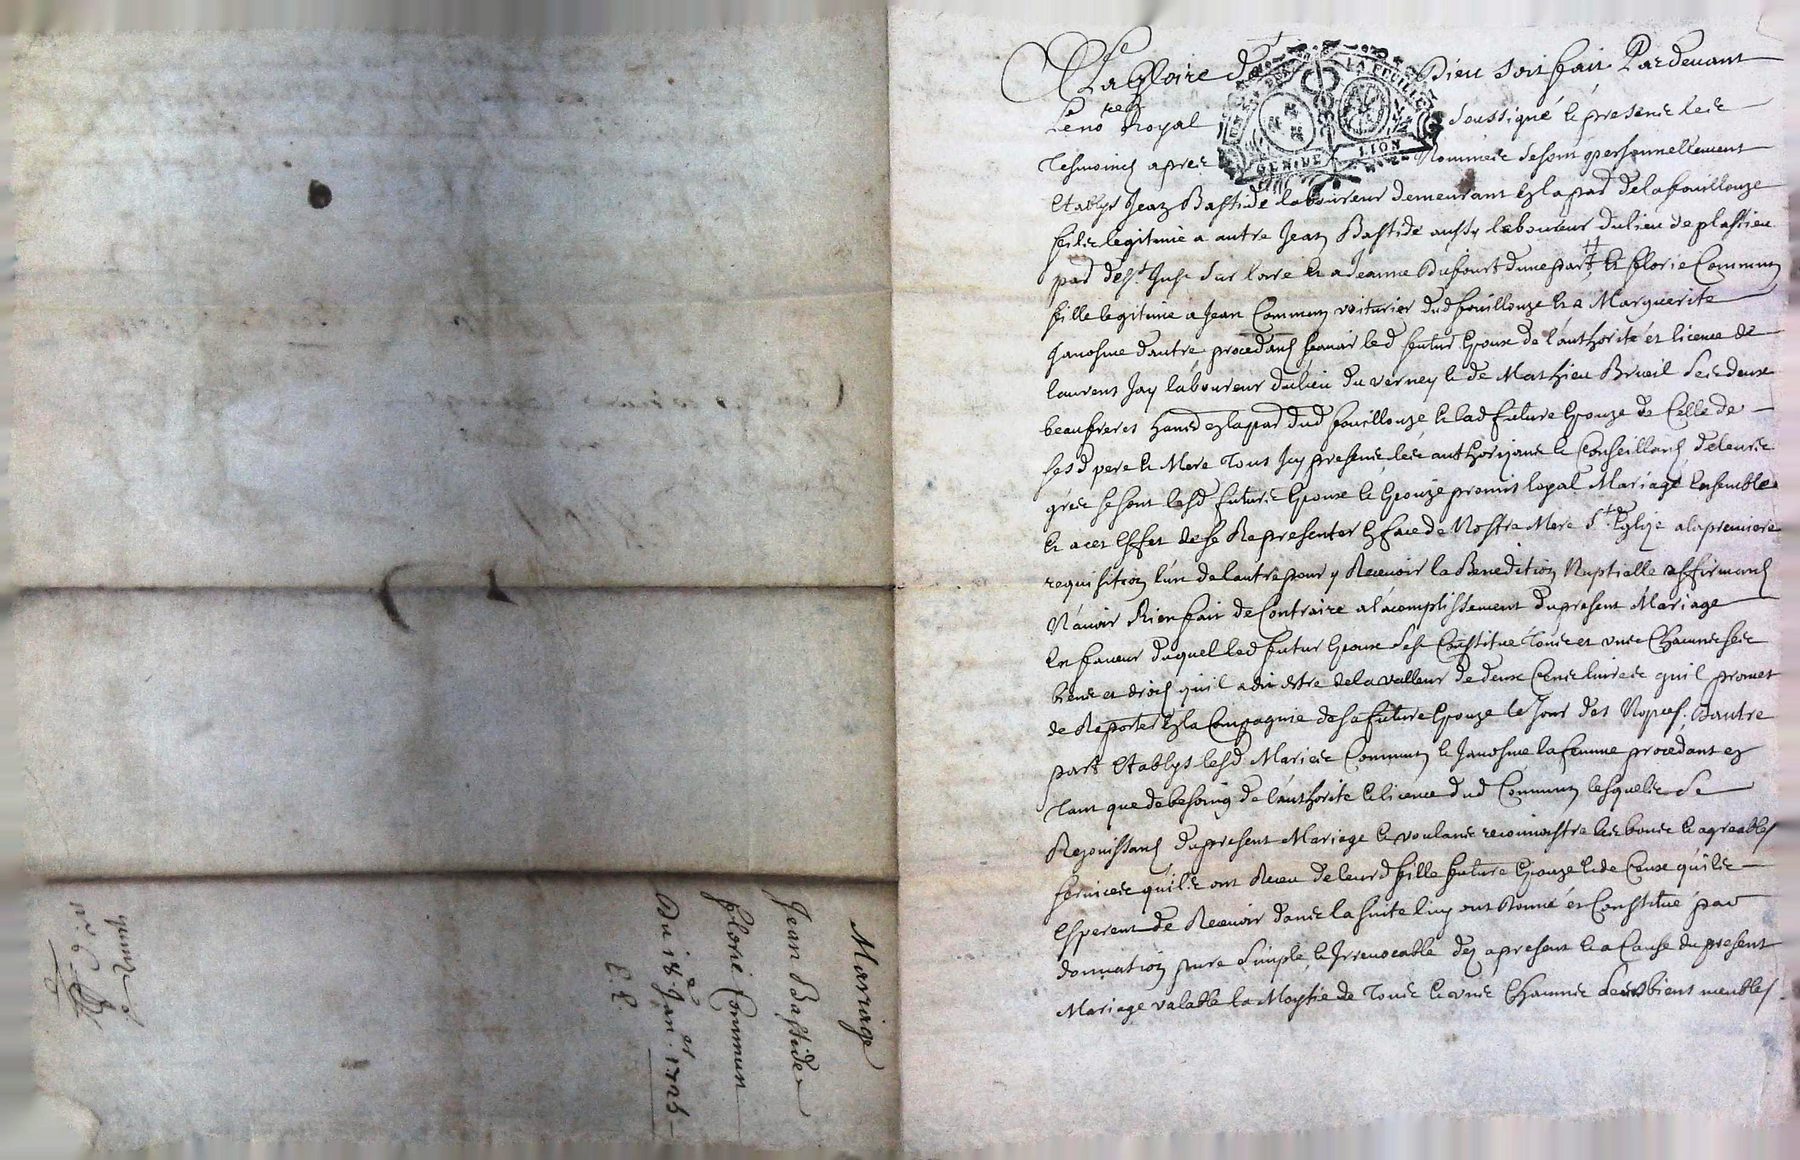 Mariage
Jean Bastide
florie Commun
Du 18e Jan.er 1725
A La Gloire de Dieu soit fait Pardevant
Le nore Royal soussigné & present les
Tesmoins apres Nommes se sont personnellement
Establys Jean Bastide laboureur demeurant en la par de la fouillouze
fils legitime a autre Jean Bastide aussy laboureur du lieu de plassieu
par de St. Just sur loire & a Jeanne Dufourt d'une part, Et florie Commun
fille legitime a Jean Commun voiturier dud fouillouze & a Marguerite
Janosme d'autre procedants scavoir led futur Epoux de l'authorité et licence de
laurent Jay laboureur du lieu du verney & de Mathieu Brueil ses deux
beaufreres en la par dud fouillouze & lad future Epouze de Celle de
ses d pere & Mere Tous Icy presents les authorizants & Conseillants de leurs
grés se sont lesd futurs Epoux & Epouze promis loyal Mariage Ensemble
Et a cet Effet de se Representer En face de Nostre Mere Ste Eglize a la premiere
requisition l'un de l'autre pour y Recevoir la Benediction Nuptialle affirmants
N'avoir Rien fait de Contraire a l'acomplissement du present Mariage
En faveur duquel led futur Epoux s'est Constitué Tous et uns Chacuns ses
biens et droits qu'il a dit estre de la valleur de deux Cens livres qu'il promet
de Reporter En la Compagnie de sa future Epouze le Jour des Nopces. D'autre
part Establys lesd Maries Commun & Janosme la femme procedant en
Tant que de besoing de l'authorité & licence dud Commun lesquels se
Rejouissants du present Mariage & voulants reconnoistre les bons & agreables
services qu'ils ont Receu de leurd fille future Epouze & de Ceux qu'ils
Esperent de Recevoir dans la suite luy ont Donné et Constitué par
donnation pure simple & Irrevocable des a present & a Cause du present
Mariage valable la Moytie de Tous & uns Chacuns leurs biens meubles
LA FEUILLE
GEN.DE LION